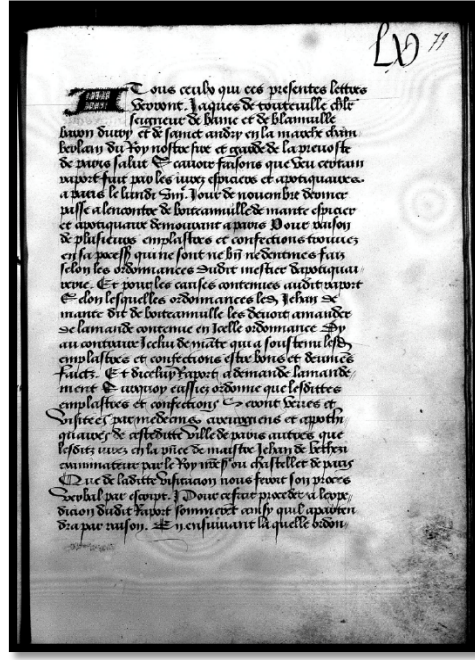 Lxv 79
A Tous ceulx qui ces presentes lettres
verront. Jaques de touteville chlr
seigneur de beine et de blainville
baron divry et de sainct andry en la marche cham
berlain du Roy nostre sire et garde de la prevoste
de paris salut Scavoir faisons que veu certain
raport fait par les jurez espiciers et apotiquaires
a paris le lundi Jour de novembre dernier
passe a lencontre de boiteauville de mante espicier
et apotiquaire demourant a paris Pour raison
de plusieurs emplastres et confections trouvez
en sa possess qui ne sont ne bn ne deument faiz
selon les ordonnances dudit mestier dapotiquai
rerie. Et pour les causes contenues audit raport
Selon lesquelles ordonnances led Jehan de
mante dit de boiteauville les devoit amander
de lamande contenue en Icelle ordonnance Et
au contraire Icelui de mante qui a soustenu lesd
emplastres et confections estre bons et deument
faictz. Et dicelluy Raport a demande lamande
ment Surquoy eussiez ordonne que lesdittes
emplastres et confections Seront veues et
visitees par medecins cirurgiens et appothi
quaires de ceste ditte ville de paris autres que
lesditz jurez en la pnce de maistre Jehan de bethizi
examinateur par le Roy nred sr ou chastellet de paris
Que de laditte visitacion nous feroit son proces
verbal par escript. Pour ce fait proceder a lexpe
dicion dudit Raport sommert ainsy quil aparten
dra par raison. En ensuivant laquelle ordon